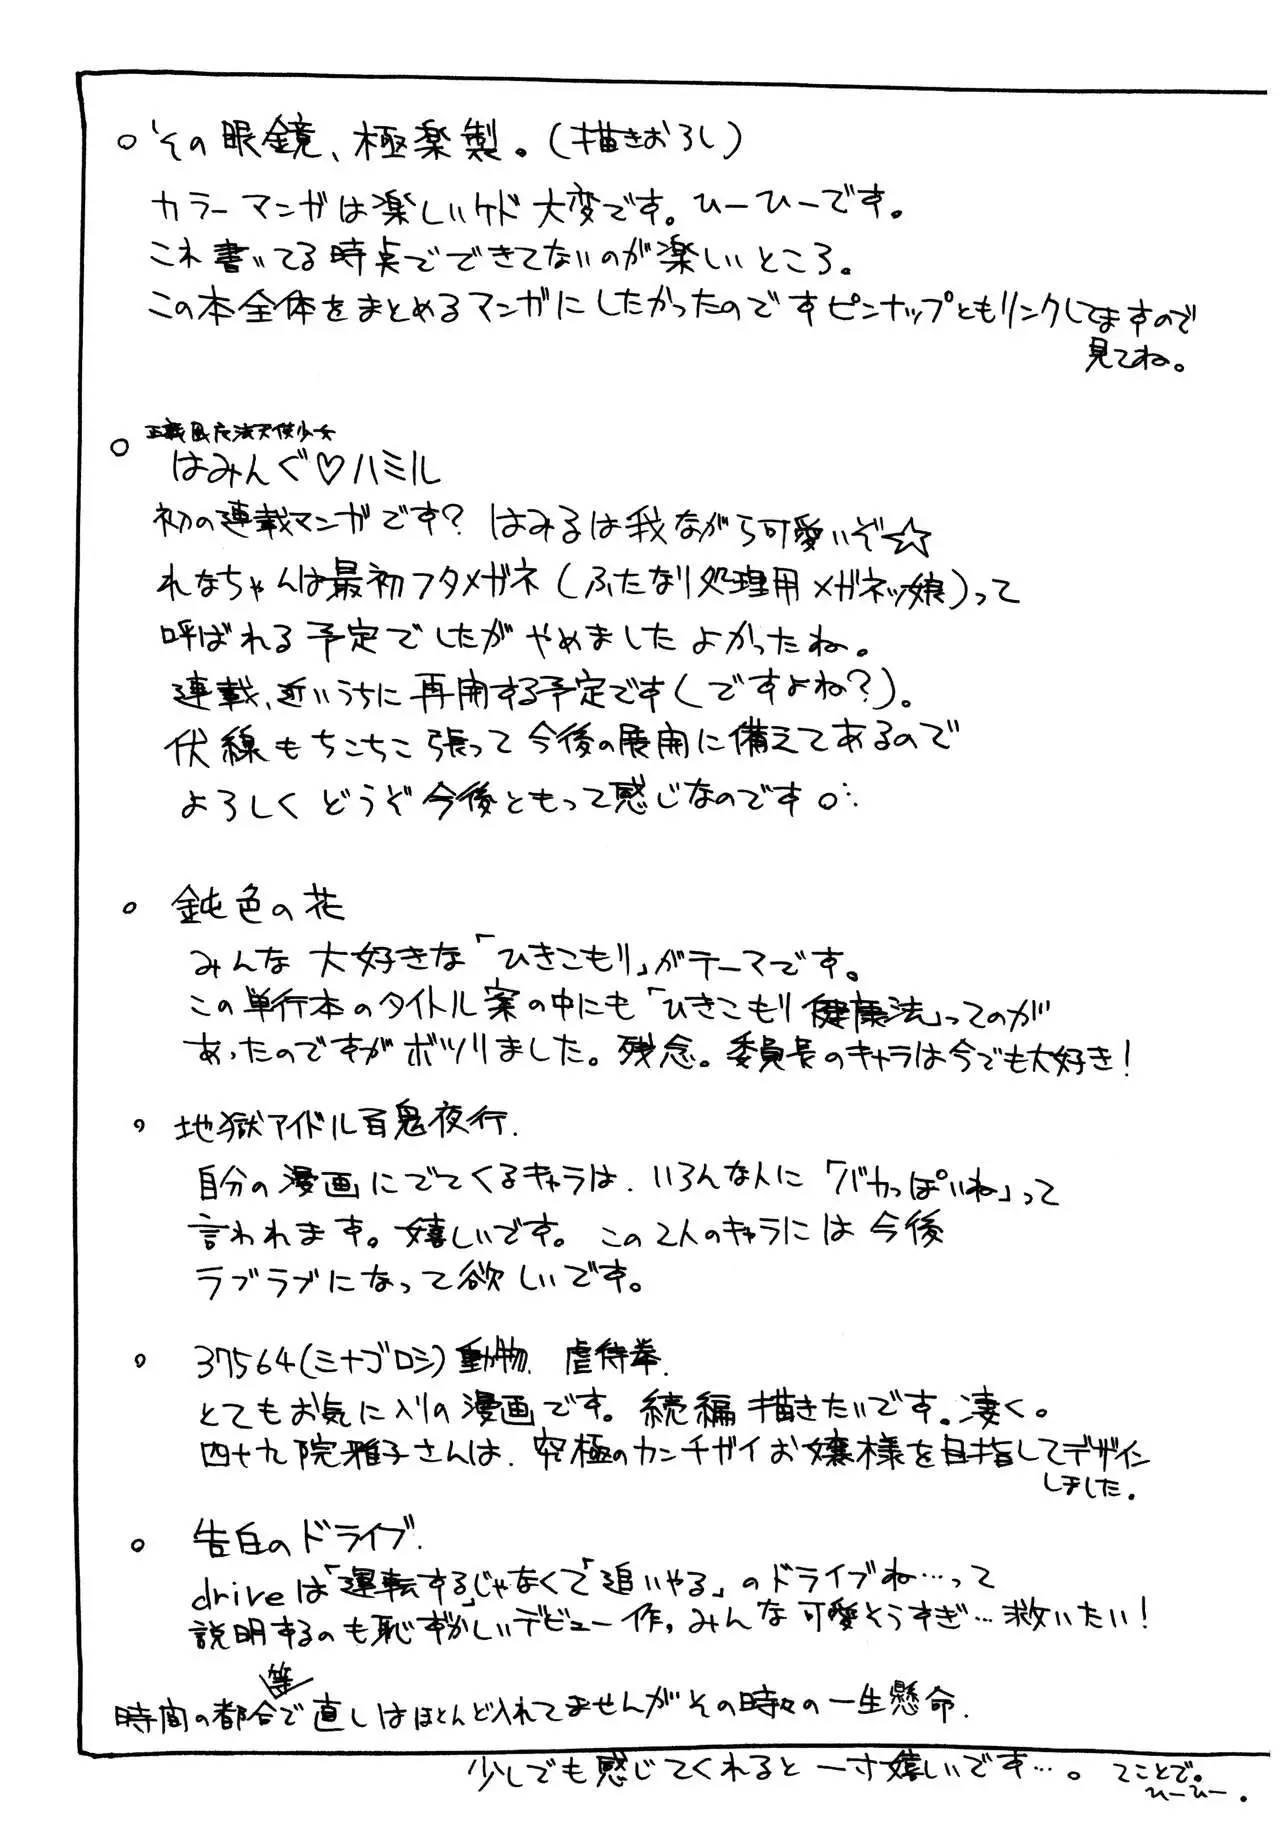 ○ その眼鏡、極楽製。(描きおろし)
カラーマンガは楽しいケド大変です。ひーひーです。
これ書いてる時点でできてないのが楽しいところ。
この本全体をまとめるマンガにしたかったのですピンナップともリンクしてますので
見てね。
天使少女
○ はみんぐ♡ハミル
初の連載マンガです? はみるは我ながら可愛いぞ☆
れなちゃんは最初フタメガネ(ふたなり処理用メガネッ娘)って
呼ばれる予定でしたがやめましたよかったね。
連載、近いうちに再開する予定です(ですよね?)。
伏線もちこちこ張って今後の展開に備えてあるので
よろしくどうぞ今後ともって感じなのです。
○ 鈍色の花
みんな大好きな「ひきこもり」がテーマです。
この単行本のタイトル案の中にも「ひきこもり健康法」ってのが
あったのですがボツりました。残念。委員長のキャラは今でも大好き!
○ 地獄アイドル百鬼夜行.
自分の漫画にでてくるキャラは、いろんな人に「バカっぽいね」って
言われます。嬉しいです。この2人のキャラには今後
ラブラブになって欲しいです。
○ 37564(ミナゴロシ)動物虐待拳.
とてもお気に入りの漫画です。続編描きたいです。凄く。
四十九院雅子さんは、究極のカンチガイお嬢様を目指してデザイン
しました。
○ 告白のドライブ.
driveは「運転する」じゃなくて「追いやる」のドライブね…って
説明するのも恥ずかしいデビュー作。みんな可愛そうすぎ…救いたい!
時間の都合等で直しはほとんど入れてませんがその時々の一生懸命.
少しでも感じてくれると一寸嬉しいです…。てことで。
ひーひー.